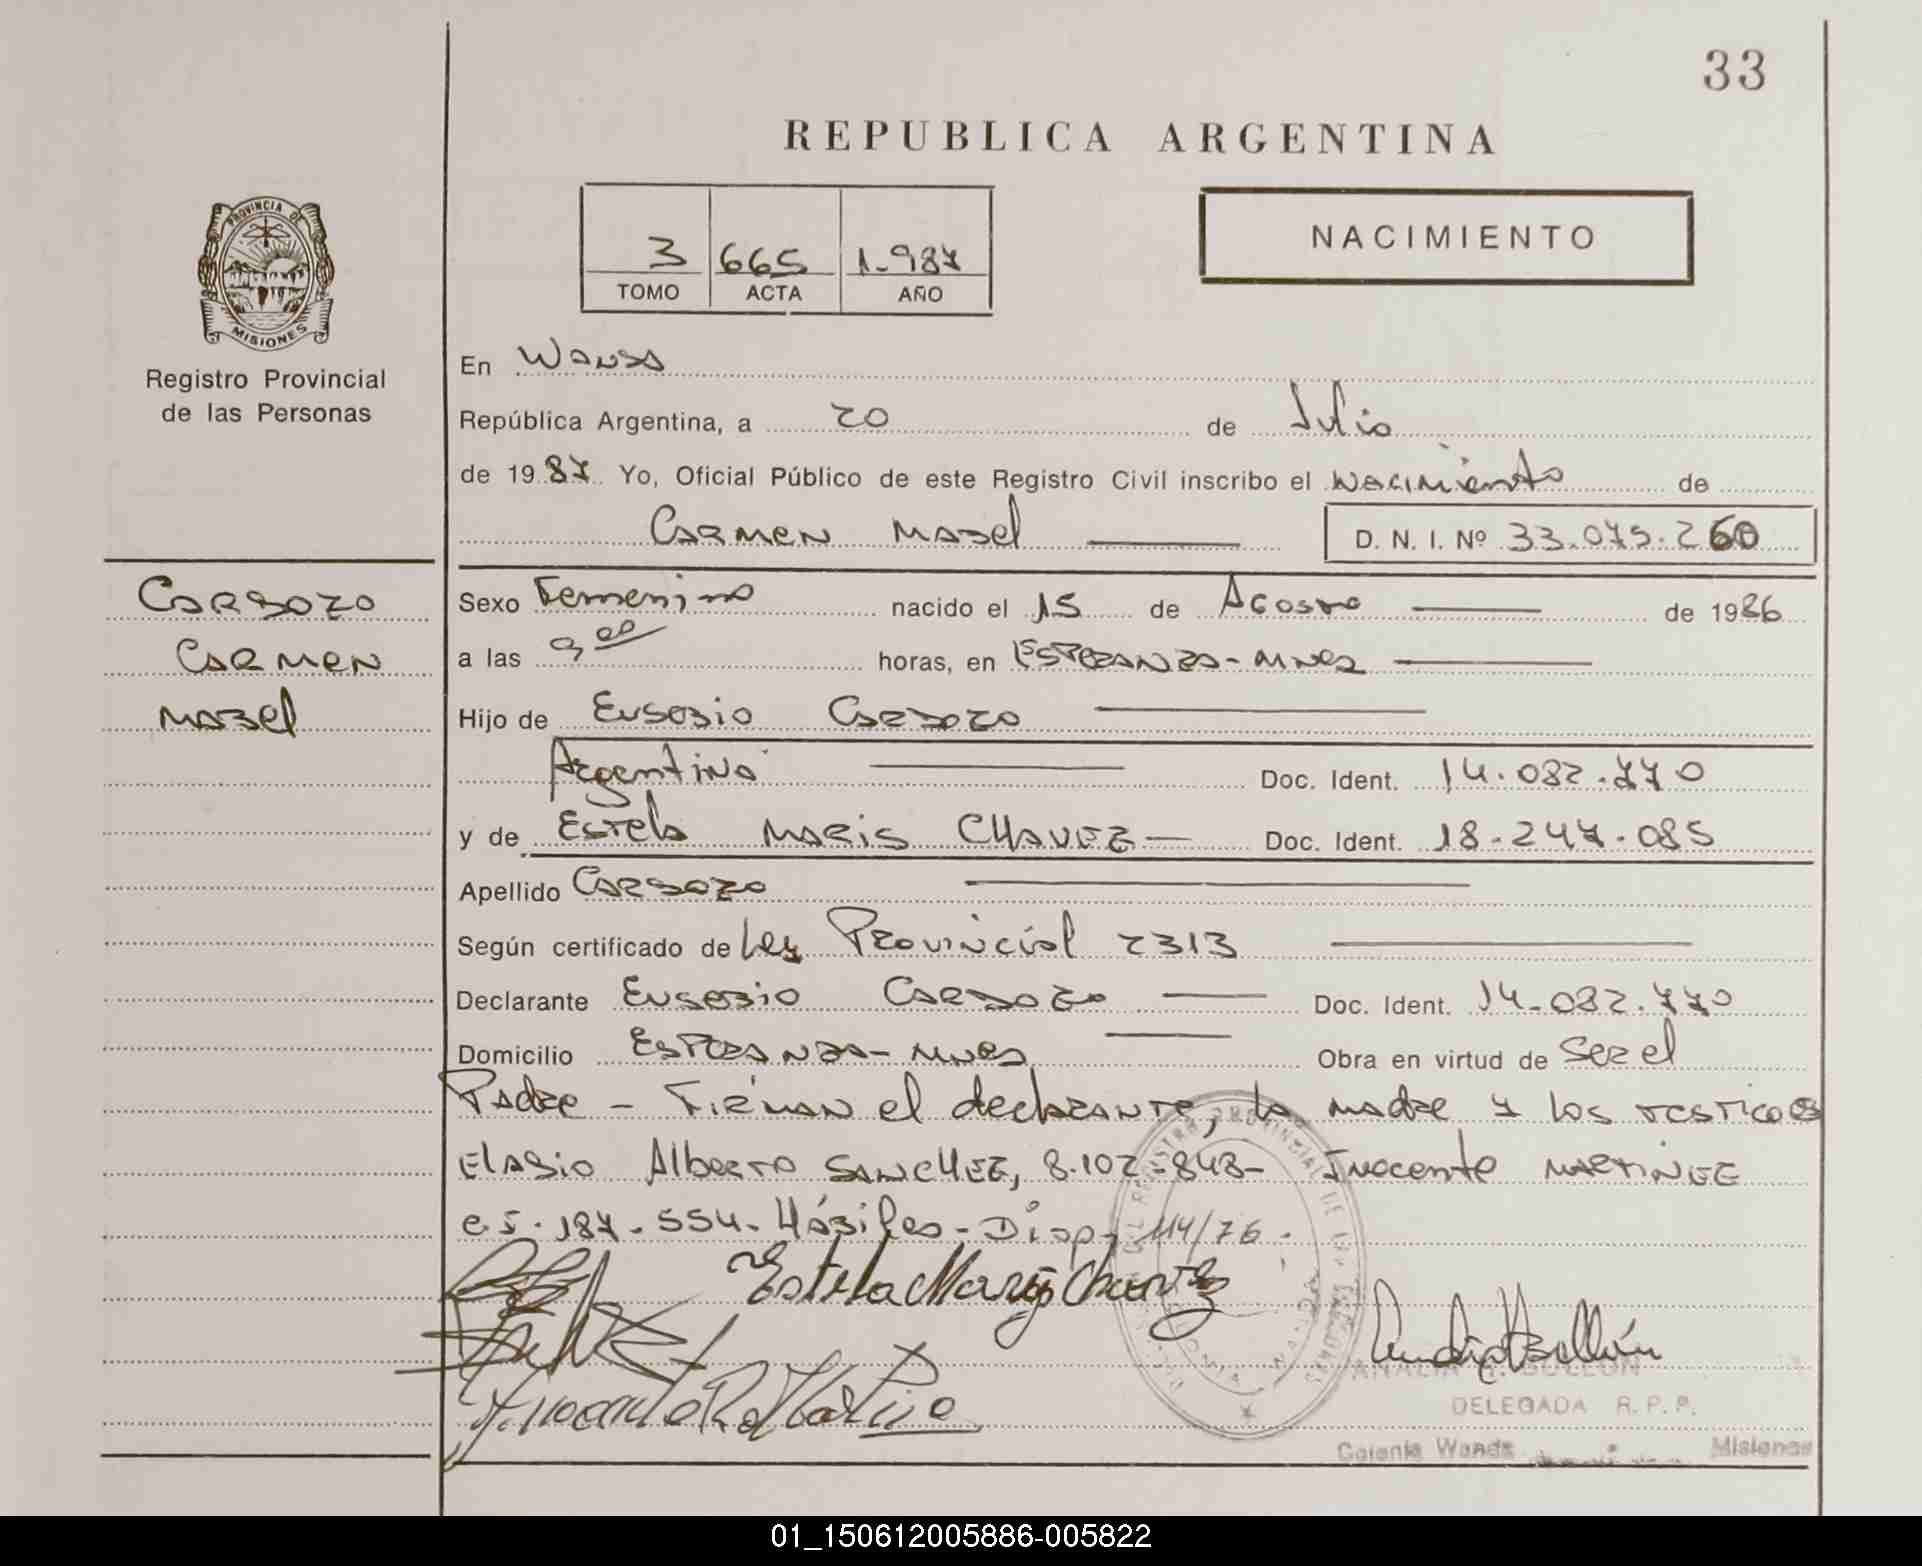 33
REPUBLICA ARGENTINA
3 665 1.987
TOMO ACTA AÑO
NACIMIENTO
PROVINCIA DE
MISIONES
Registro Provincial
de las Personas
En Wanda
República Argentina, a 20 de Julio
de 1987 Yo, Oficial Público de este Registro Civil inscribo el Nacimiento de
Carmen Mabel D. N. I. Nº 33.075.260
Cardozo
Carmen
Mabel
Sexo Femenino nacido el 15 de Agosto de 1986
a las 9,00 horas, en Esperanza-Mnes
Hijo de Eusebio Cardozo
Argentino Doc. Ident. 14.082.770
y de Estela Maris CHAVEZ Doc. Ident. 18.247.085
Apellido Cardozo
Según certificado de Ley Provincial 2313
Declarante Eusebio Cardozo Doc. Ident. 14.082.770
Domicilio Esperanza-Mnes Obra en virtud de Ser el
Padre - Firman el declarante, la madre y los testigos
Eladio Alberto SANCHEZ, 8.102.848- Inocente MARTINEZ
C.I. 187.554. Hábiles- Disp. 114/76.
Estela Maris Chavez
ANALIA H. BULLON
DELEGADA R. P. P.
Colonia Wanda Misiones
01_150612005886-005822